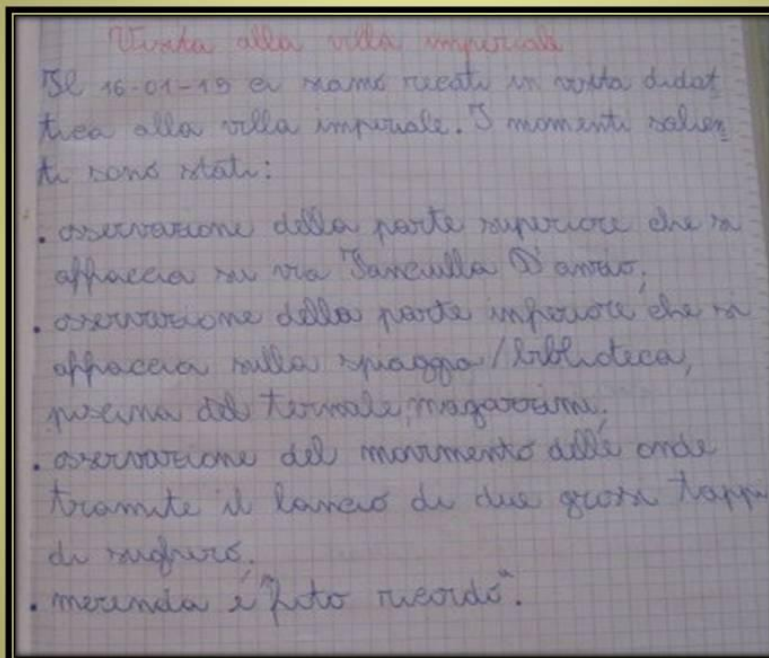 Visita alla villa imperiale
Il 16-01-19 ci siamo recati in visita didat
tica alla villa imperiale. I momenti salien
ti sono stati:
. osservazione della parte superiore che si
affaccia su via Fanciulla D'anzio,
. osservazione della parte inferiore che si
affaccia sulla spiaggia/biblioteca,
piscina del termale, magazzini.
. osservazione del movimento delle onde
tramite il lancio di due grossi tappi
di sughero.
. merenda e "foto ricordo".